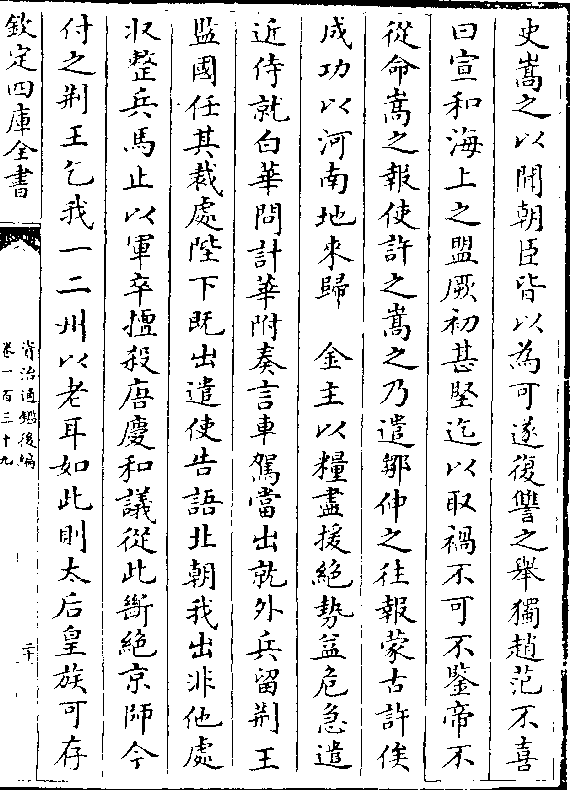 史嵩之以聞朝臣皆以為可遂復讐之舉獨趙范不喜
曰宣和海上之盟厥初甚堅迄以取禍不可不鑒帝不
從命嵩之報使許之嵩之乃遣鄒伸之往報蒙古許俟
成功以河南地來歸　金主以糧盡援絶勢益危急遣
近侍就白華問計華附奏言車駕當出就外兵留荆王
監國任其裁處陛下既出遣使告語北朝我出非他處
収整兵馬止以軍卒擅殺唐慶和議從此斷絶京師今
付之荆王乞我一二州以老耳如此則太后皇族可存
欽定四庫全書
資治通鑑後編
卷一百三十九
二十